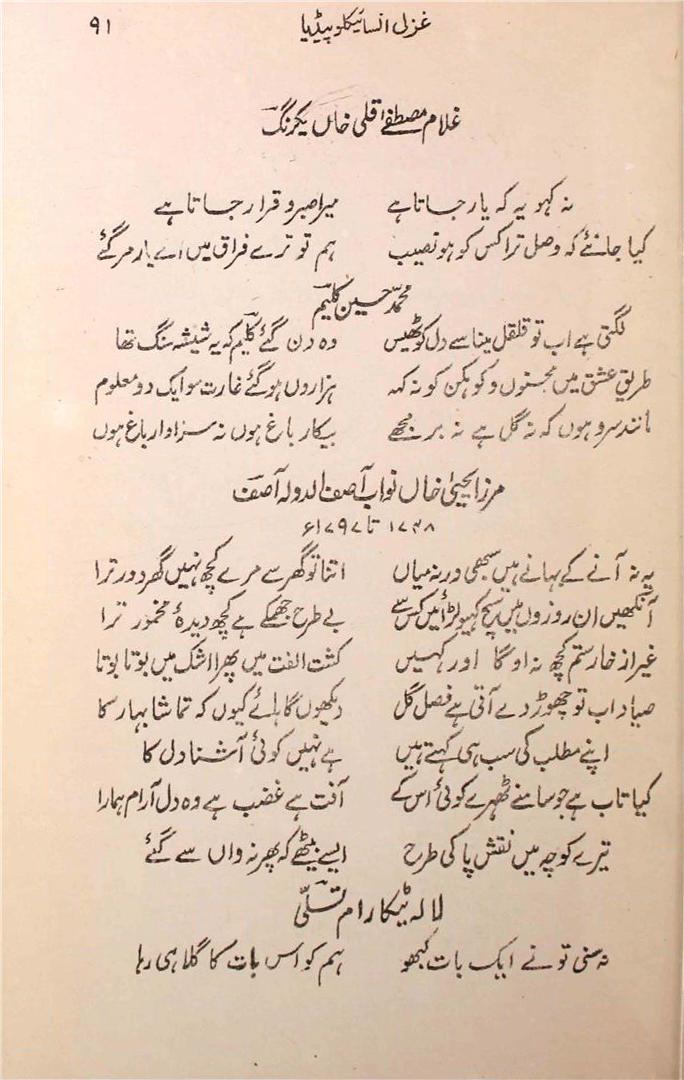 غزل انسائیکلوپیڈیا ۹۱
غلام مصطفےٰ قلی خاں یکرنگؔ
نہ کہو یہ کہ یار جاتا ہے میرا صبر و قرار جاتا ہے
کیا جانئے کہ وصل ترا کس کو ہو نصیب ہم تو ترے فراق میں اے یار مر گئے
محمد حسین کلیمؔ
لگتی ہے اب تو قلقل مینا سے دل کو ٹھیس وہ دن گئے کلیمؔ کہ یہ شیشہ سنگ تھا
طریق عشق میں مجنوں و کوہکن کو نہ کہہ ہزاروں ہو گئے غارت سو ایک دو معلوم
مانند سرو ہوں کہ نہ گل ہے نہ بر مجھے بیکار باغ ہوں نہ سزاوار باغ ہوں
مرزا یحییٰ خاں نواب آصف الدولہ آصفؔ
۱۷۴۸ تا ۱۷۹۷ء
یہ نہ آنے کے بہانے ہیں سبھی ورنہ میاں اتنا تو گھر سے مرے کچھ نہیں گھر دور ترا
آنکھیں ان روزوں میں سچ کہیو لڑائیں کس سے بے طرح جھمکے ہے کچھ دیدۂ مخمور ترا
غیر از خار ستم کچھ نہ اوگا اور کہیں کشت الفت میں پھرا اشک میں بوتا بوتا
صیاد اب تو چھوڑ دے آتی ہے فصل گل دیکھوں گا ہائے کیوں کہ تماشا بہار کا
اپنے مطلب کی سب ہی کہتے ہیں ہے نہیں کوئی آشنا دل کا
کیا تاب ہے جو سامنے ٹھہرے کوئی اس کے آفت ہے غضب ہے وہ دل آرام ہمارا
تیرے کوچہ میں نقش پا کی طرح ایسے بیٹھے کہ پھر نہ واں سے گئے
لالہ ٹیکا رام تسلّیؔ
نہ سنی تو نے ایک بات کبھو ہم کو اس بات کا گلا ہی رہا